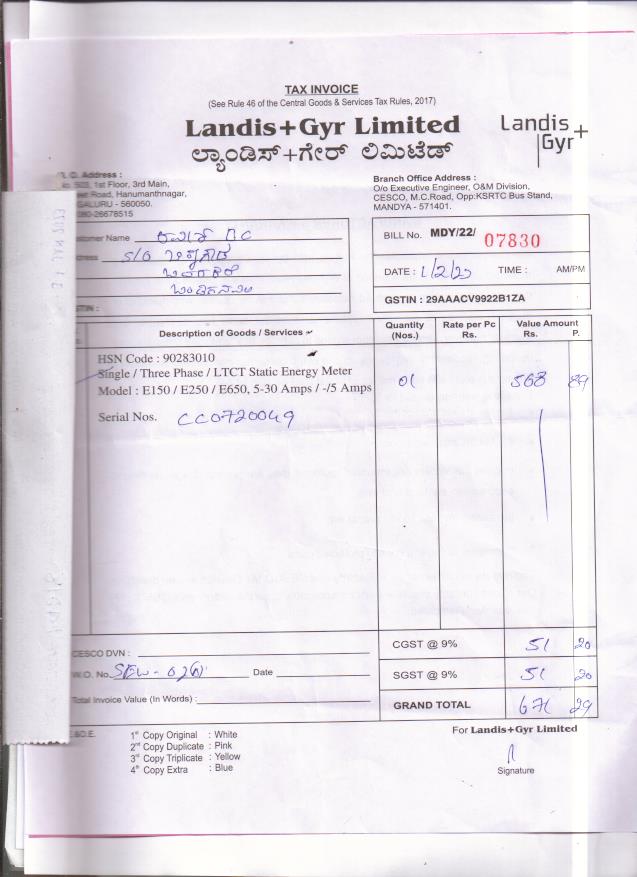 TAX INVOICE
(See Rule 46 of the Central Goods & Services Tax Rules, 2017)
Landis+Gyr Limited
ಲ್ಯಾಂಡಿಸ್+ಗೇರ್ ಲಿಮಿಟೆಡ್
Landis+Gyr
Address :
1st Floor, 3rd Main,
Road, Hanumanthnagar,
- 560050.
080-26678515
Branch Office Address :
O/o Executive Engineer, O&M Division,
CESCO, M.C.Road, Opp:KSRTC Bus Stand,
MANDYA - 571401.
Customer Name
S/O
BILL No. MDY/22/ 07830
DATE : 1/2/23 TIME : AM/PM
GSTIN : 29AAACV9922B1ZA
Description of Goods / Services Quantity (Nos.) Rate per Pc Rs. Value Amount Rs. P.
HSN Code : 90283010
Single / Three Phase / LTCT Static Energy Meter
Model : E150 / E250 / E650, 5-30 Amps / -/5 Amps 01 568 89
Serial Nos. CC0720049
CESCO DVN :
CGST @ 9% 51 20
W.O. No. Date
SGST @ 9% 51 20
Total Invoice Value (In Words) :
GRAND TOTAL 671 29
E.&O.E.
1st Copy Original : White
2nd Copy Duplicate : Pink
3rd Copy Triplicate : Yellow
4th Copy Extra : Blue
For Landis+Gyr Limited
Signature